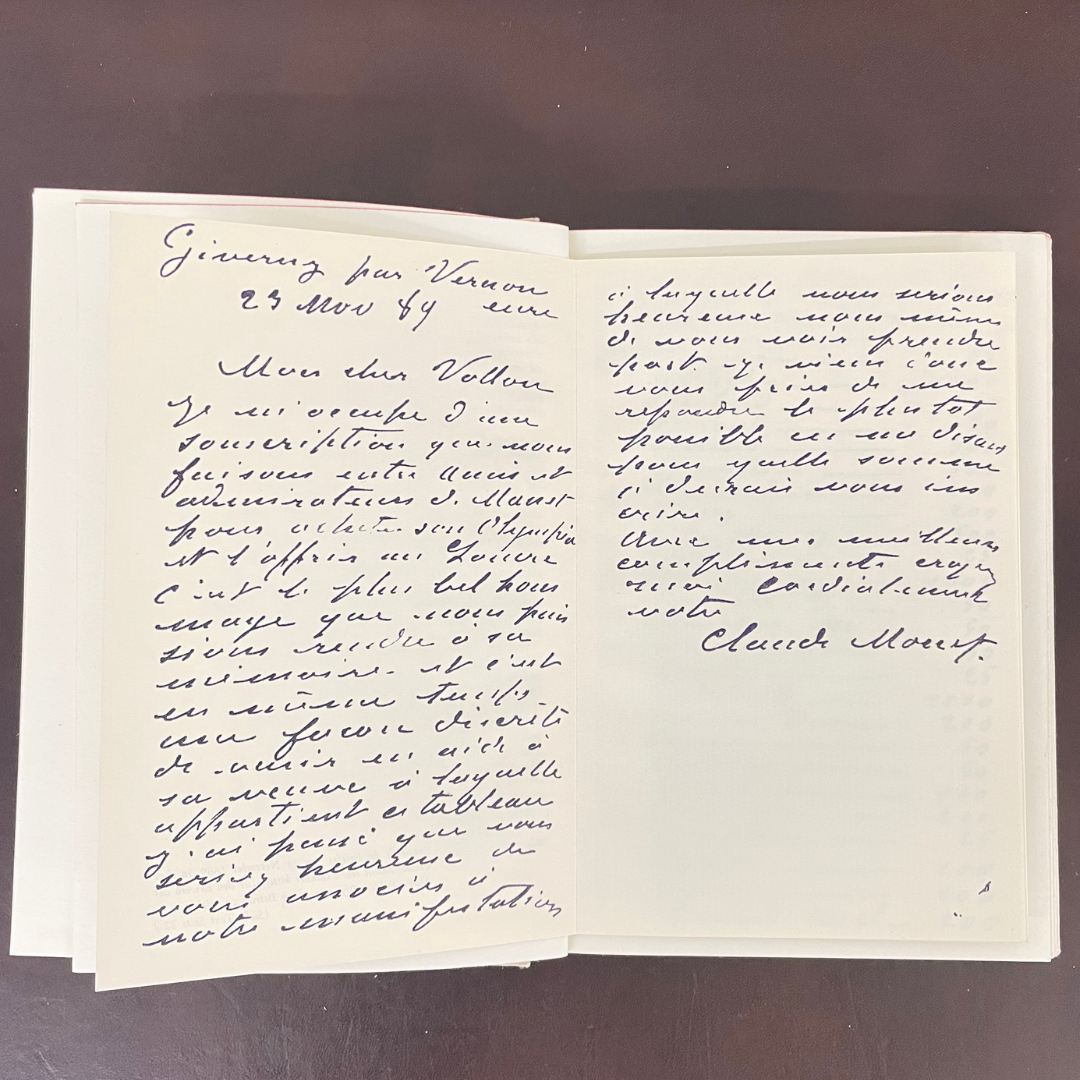 Giverny par Vernon
23 Nov 89 eure
Mon cher Vollon
Je m'occupe d'une
souscription que nous
faisons entre amis et
admirateurs de Manet
pour acheter son Olympia
et l'offrir au Louvre
c'est le plus bel hom
mage que nous puis
sions rendre à sa
mémoire. et c'est
en même temps
une façon discrète
de venir en aide à
sa veuve à laquelle
appartient ce tableau
j'ai pensé que vous
seriez heureuse de
vous associer à
notre manifestation
à laquelle nous serions
heureuse nous même
de vous voir prendre
part. je viens donc
vous prier de me
repondre le plutot
possible en me disant
pour quelle somme
je devrais vous ins
crire.
Avec mes meilleurs
compliments croyez
moi cordialement
votre
Claude Monet